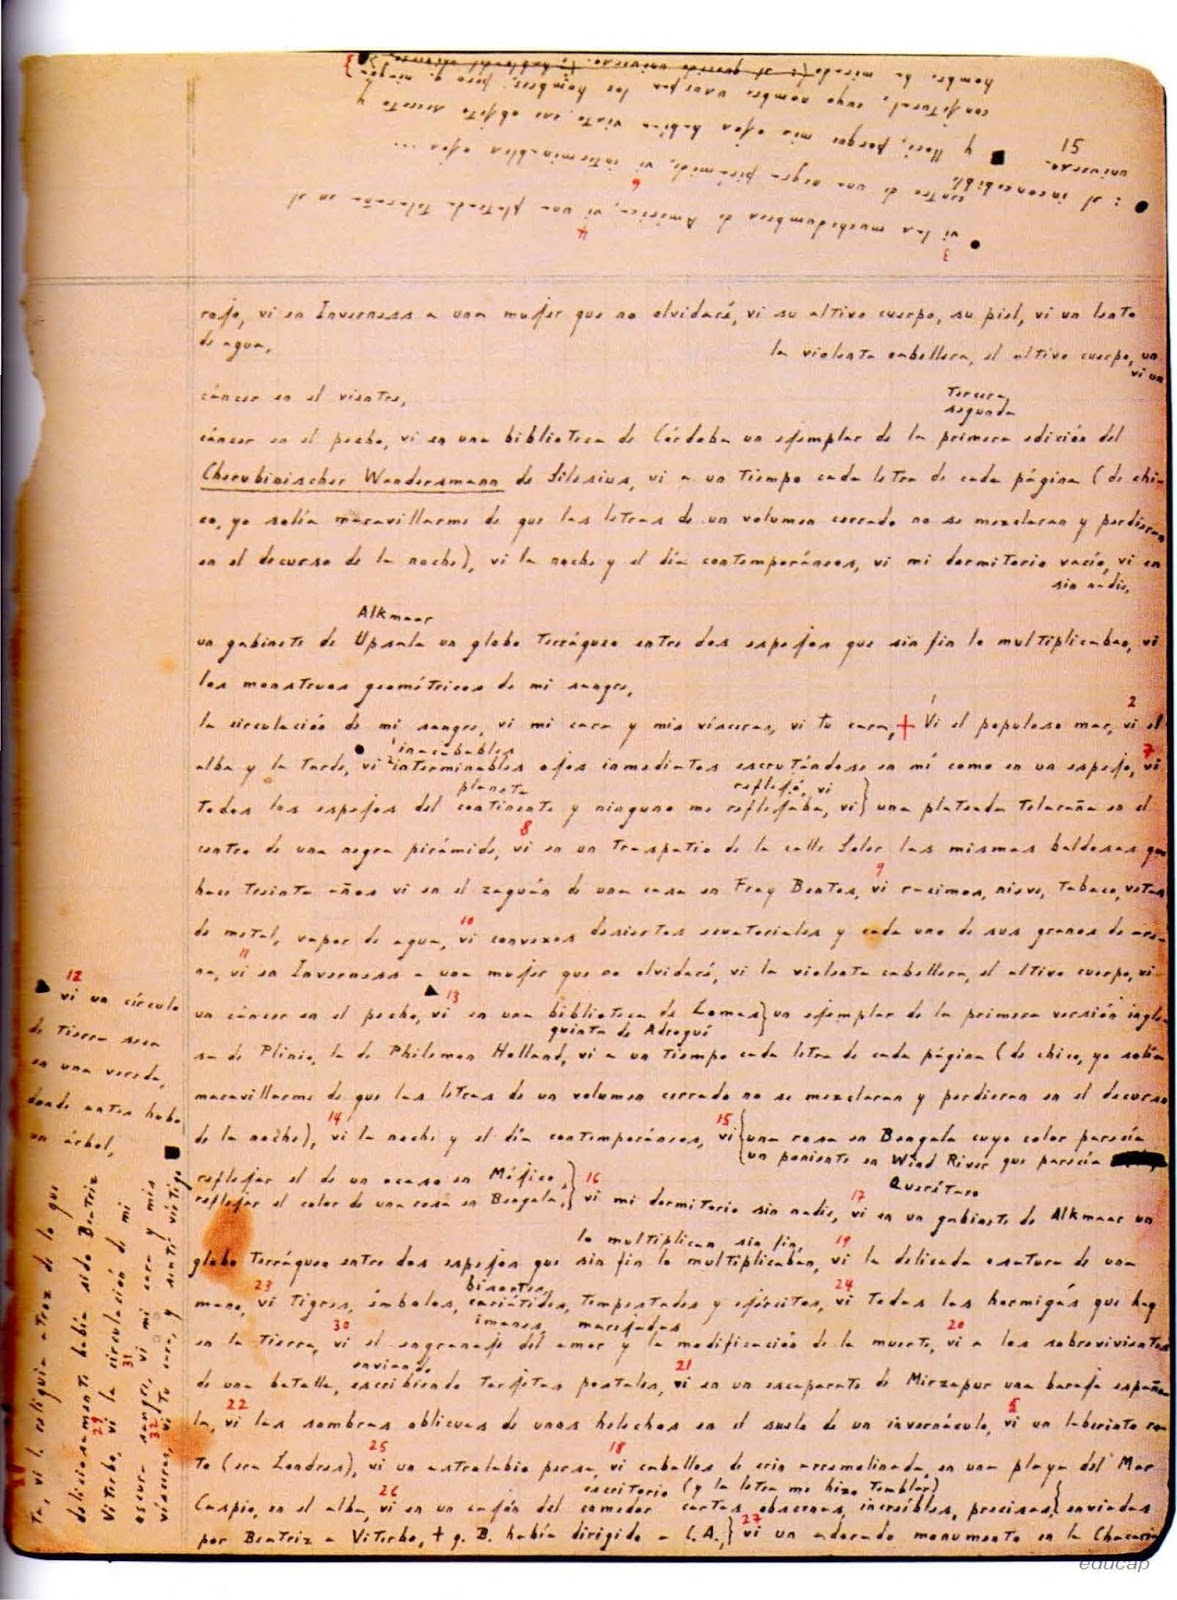 hombre ha mirado: el inconcebible universo.
conjetural, cuyo nombre usurpan los hombres, pero q. ningún
y lloré, porque mis ojos habían visto ese objeto secreto y
centro de una negra pirámide, vi interminables ojos ...
6
: el inconcebible
universo.
51
vi las muchedumbres de América, vi una plateada telaraña en el
3
4
rojo, vi en Inverness a una mujer que no olvidaré, vi su altivo cuerpo, su piel, vi un lento
de agua,
la violenta cabellera, el altivo cuerpo, un
vi un
cáncer en el vientre,
tercera
segunda
cáncer en el pecho, vi en una biblioteca de Córdoba un ejemplar de la primera edición del
Cherubinischer Wandersmann de Silesius, vi a un tiempo cada letra de cada página (de chi-
co, yo solía maravillarme de que las letras de un volumen cerrado no se mezclaran y perdieran
en el decurso de la noche), vi la noche y el día contemporáneos, vi mi dormitorio vacío, vi en
sin nadie,
Alkmaar
un gabinete de Upsala un globo terráqueo entre dos espejos que sin fin lo multiplicaban, vi
los monstruos geométricos de mi sangre,
2
la circulación de mi sangre, vi mi cara y mis vísceras, vi tu cara, + Vi el populoso mar, vi el
1 inacabables
7
alba y la tarde, vi 2 interminables ojos inmediatos escrutándose en mí como en un espejo, vi
planeta
reflejó, vi
todos los espejos del continente y ninguno me reflejaba, vi} una plateada telaraña en el
8
centro de una negra pirámide, vi en un traspatio de la calle Soler las mismas baldosas que
9
hace treinta años vi en el zaguán de una casa en Fray Bentos, vi racimos, nieve, tabaco, vetas
10
de metal, vapor de agua, vi convexos desiertos ecuatoriales y cada uno de sus granos de are-
11
na, vi en Inverness a una mujer que no olvidaré, vi la violenta cabellera, el altivo cuerpo, vi
13
un cáncer en el pecho, vi en una biblioteca de Lomas} un ejemplar de la primera versión ingle-
quinta de Adrogué
sa de Plinio, la de Philemon Holland, vi a un tiempo cada letra de cada página (de chico, yo solía
maravillarme de que las letras de un volumen cerrado no se mezclaran y perdieran en el decurso
14
15
de la noche), vi la noche y el día contemporáneos, vi {una rosa en Bengala cuyo color parecía
un poniente en Wind River que parecía
reflejar el de un ocaso en Méjico,
16
Querétaro
reflejar el color de una rosa en Bengala,} vi mi dormitorio sin nadie, vi en un gabinete de Alkmaar un
17
lo multiplican sin fin,
19
globo terráqueo entre dos espejos que sin fin lo multiplicaban, vi la delicada osatura de una
23
bisontes,
24
mano, vi tigres, émbolos, cariátides, tempestades y ejércitos, vi todas las hormigas que hay
30
imanes, marejadas
20
en la tierra, vi el engranaje del amor y la modificación de la muerte, vi a los sobrevivientes
enviando
21
de una batalla, escribiendo tarjetas postales, vi en un escaparate de Mirzapur una baraja españo-
22
5
la, vi las sombras oblicuas de unos helechos en el suelo de un invernáculo, vi un laberinto ro-
25
18
to (era Londres), vi un astrolabio persa, vi caballos de crin arremolinada, en una playa del Mar
26
escritorio (y la letra me hizo temblar)
Caspio, en el alba, vi en un cajón del comedor cartas obscenas, increíbles, precisas, {enviadas
27
por Beatriz a Viterbo, + q. B. había dirigido a C.A.,} vi un adorado monumento en la Chacari-
12
vi un círculo
de tierra seca
en una vereda,
donde antes hubo
un árbol,
ta, vi la reliquia atroz de lo que
deliciosamente había sido Beatriz
29
Viterbo, vi la circulación de mi
31
oscura sangre, vi mi cara y mis
32
vísceras, vi tu cara, y sentí vértigo
educap